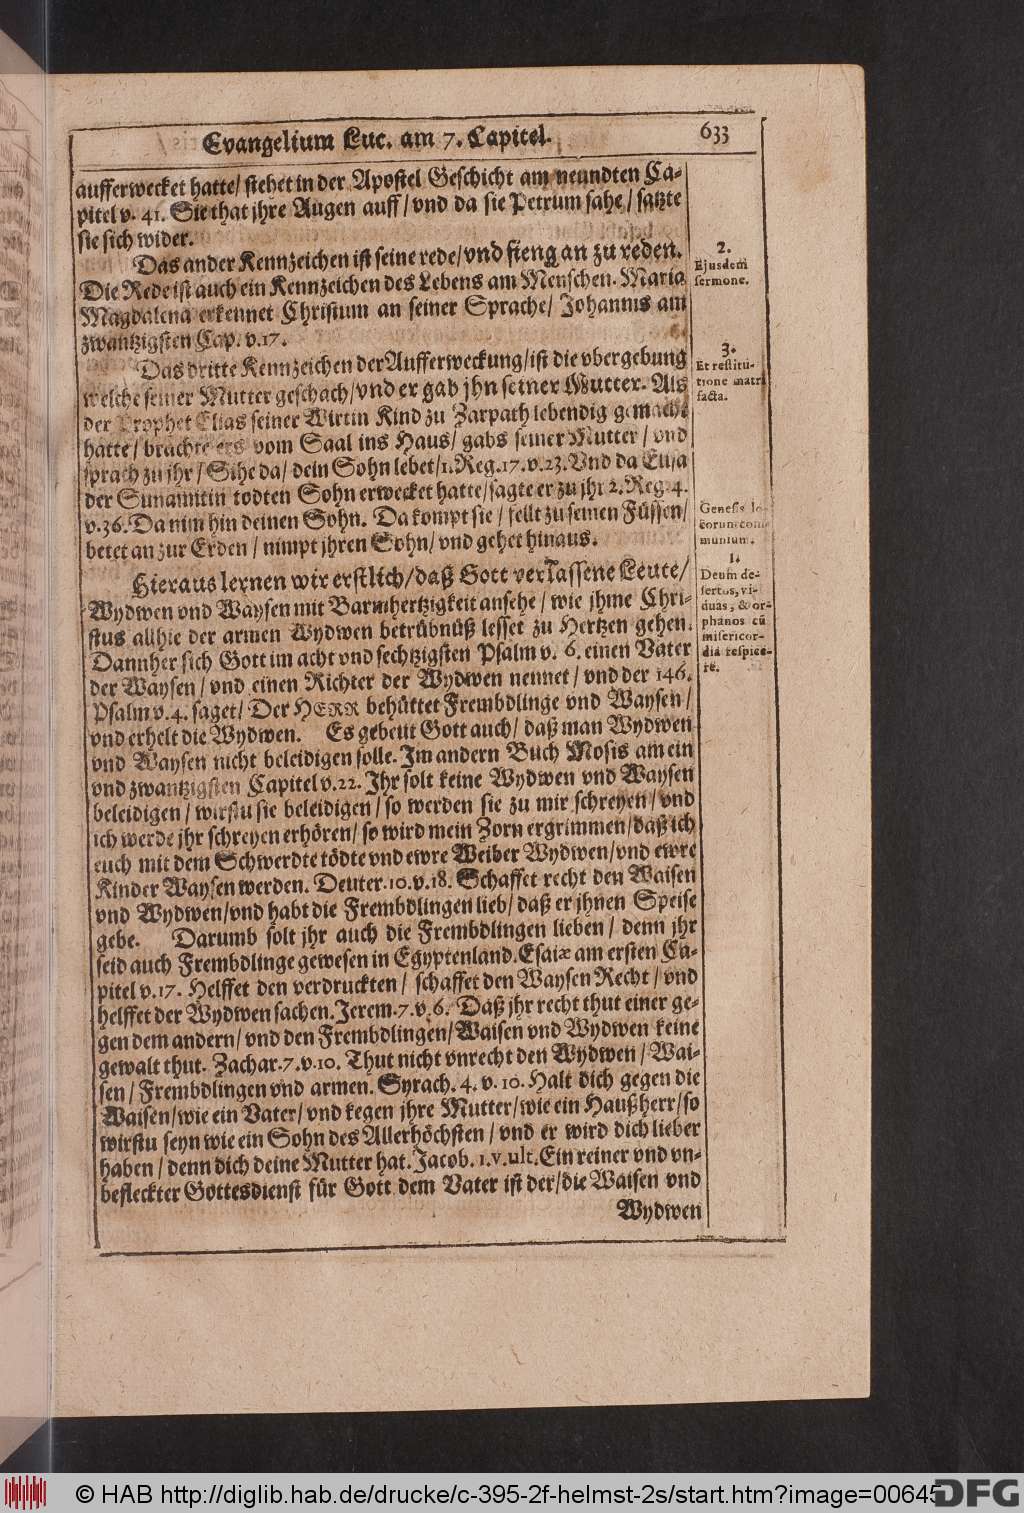 Evangelium Luc. am 7. Capitel. 633
aufferwecket hatte/ stehet in der Apostel Geschicht am neundten Ca-
pitel v. 41. Sie that jhre Augen auff/ vnd da sie Petrum sahe/ satzte
sie sich wider.
Das ander Kennzeichen ist seine rede/ vnd fieng an zu reden.
Die Rede ist auch ein Kennzeichen des Lebens am Menschen. Maria
Magdalena erkennet Christum an seiner Sprache/ Johannis am
zwantzigsten Cap. v. 17.
2.
Ejusdem
sermone.
Das dritte Kennzeichen der Aufferweckung/ ist die vbergebung
welche seiner Mutter geschach/ vnd er gab jhn seiner Mutter. Als
der Prophet Elias seiner Wirtin Kind zu Zarpath lebendig gemacht
hatte/ brachte ers vom Saal ins Haus/ gabs seiner Mutter/ vnd
sprach zu jhr/ Sihe da/ dein Sohn lebet/ 1. Reg. 17. v. 23. Vnd da Elisa
der Sunamitin todten Sohn erwecket hatte/ sagte er zu jhr 2. Reg. 4.
v. 36. Da nim hin deinen Sohn. Da kompt sie/ fellt zu seinen Füssen/
betet an zur Erden/ nimpt jhren Sohn/ vnd gehet hinaus.
3.
Et restitu-
tione matri
facta.
Hieraus lernen wir erstlich/ daß Gott verlassene Leute/
Wydwen vnd Waysen mit Barmhertzigkeit ansehe/ wie jhme Chri-
stus allhie der armen Wydwen betrübnüß lesset zu Hertzen gehen.
Dannher sich Gott im acht vnd sechtzigsten Psalm v. 6. einen Vater
der Waysen/ vnd einen Richter der Wydwen nennet/ vnd der 146.
Psalm v. 4. saget/ Der HERR behüttet Frembdlinge vnd Waysen/
vnd erhelt die Wydwen. Es gebeut Gott auch/ daß man Wydwen
vnd Waysen nicht beleidigen solle. Im andern Buch Mosis am ein
vnd zwantzigsten Capitel v. 22. Ihr solt keine Wydwen vnd Waysen
beleidigen/ wirstu sie beleidigen/ so werden sie zu mir schreyen/ vnd
ich werde jhr schreyen erhören/ so wird mein Zorn ergrimmen/ daß ich
euch mit dem Schwerdte tödte vnd ewre Weiber Wydwen/ vnd ewre
Kinder Waysen werden. Deuter. 10. v. 18. Schaffet recht den Waisen
vnd Wydwen/ vnd habt die Frembdlingen lieb/ daß er jhnen Speise
gebe. Darumb solt jhr auch die Frembdlingen lieben/ denn jhr
seid auch Frembdlinge gewesen in Egyptenland. Esaiæ am ersten Ca-
pitel v. 17. Helffet den verdruckten/ schaffet den Waysen Recht/ vnd
helffet der Wydwen sachen. Jerem. 7. v. 6. Daß jhr recht thut einer ge-
gen dem andern/ vnd den Frembdlingen/ Waisen vnd Wydwen keine
gewalt thut. Zachar. 7. v. 10. Thut nicht vnrecht den Wydwen/ Wai-
sen/ Frembdlingen vnd armen. Syrach. 4. v. 10. Halt dich gegen die
Waisen/ wie ein Vater/ vnd kegen jhre Mutter/ wie ein Haußherr/ so
wirstu seyn wie ein Sohn des Allerhöchsten/ vnd er wird dich lieber
haben/ denn dich deine Mutter hat. Jacob. 1. v. ult. Ein reiner vnd vn-
befleckter Gottesdienst für Gott dem Vater ist der/ die Waisen vnd
Wydwen
Genesis lo-
corum com-
munium.
1.
Deum de-
sertos, vi-
duas, & or-
phanos cū
misericor-
dia respice-
re.
© HAB http://diglib.hab.de/drucke/c-395-2f-helmst-2s/start.htm?image=00645
DFG